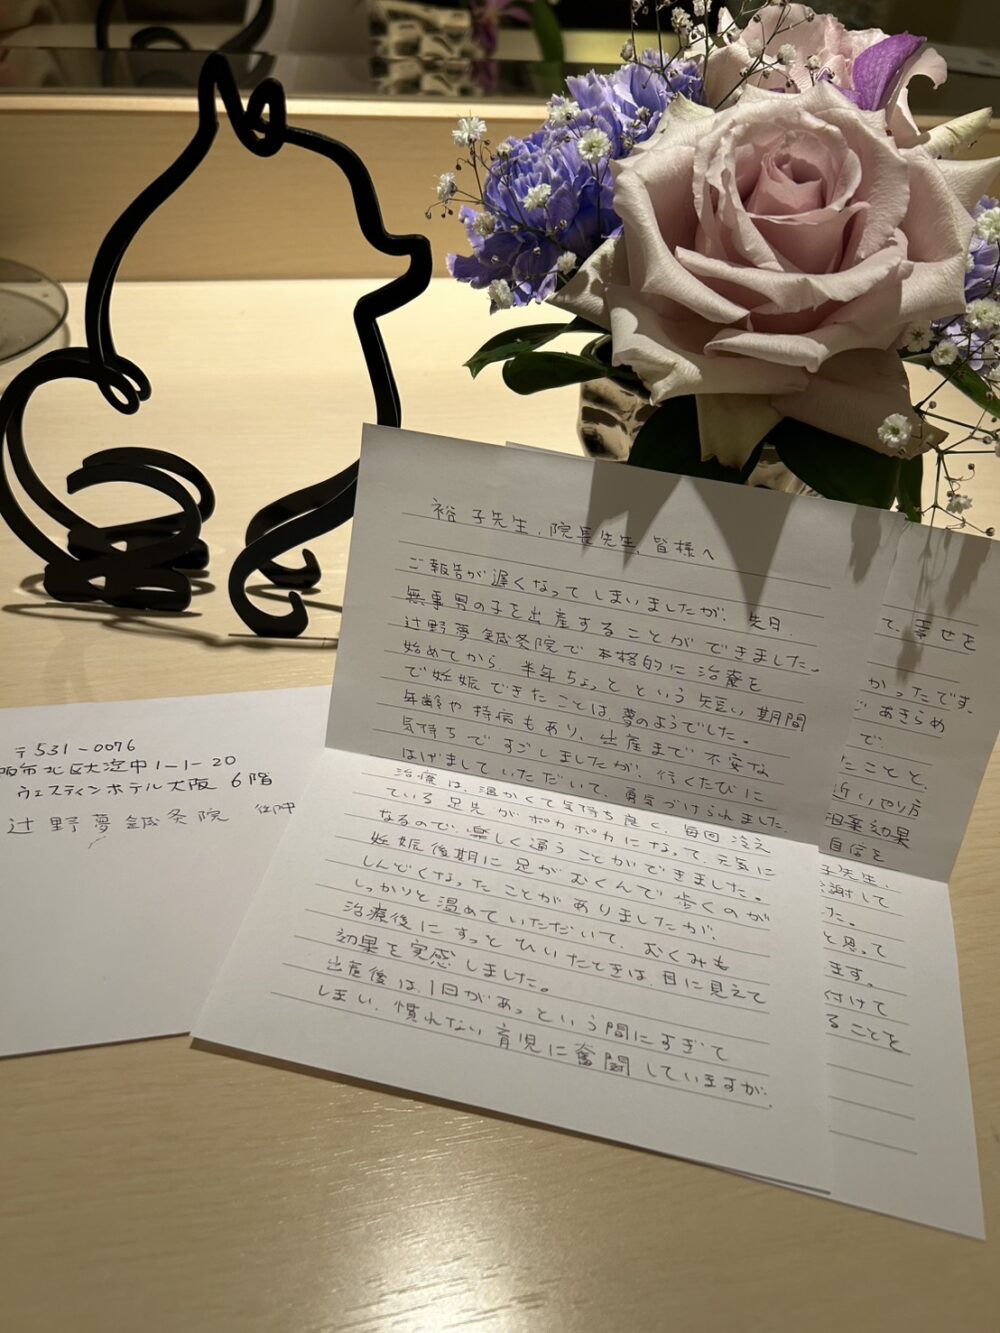 裕子先生、院長先生、皆様へ
ご報告が遅くなってしまいましたが、先日、
無事男の子を出産することができました。
辻野夢鍼灸院で本格的に治療を
始めてから、半年ちょっとという短い期間
で妊娠できたことは、夢のようでした。
年齢や持病もあり、出産まで不安な
気持ちですごしましたが、行くたびに
はげましていただいて、勇気づけられました。
治療は、温かくて気持ち良く、毎回冷え
ている足先がポカポカになって、元気に
なるので、楽しく通うことができました。
妊娠後期に足がむくんで歩くのが
しんどくなったことがありましたが、
しっかりと温めていただいて、むくみも
治療後にすっとひいたときは、目に見えて
効果を実感しました。
出産後は、1日があっという間にすぎて
しまい、慣れない育児に奮闘していますが、
て、幸せを
かったです。
あきらめ
で、
たことと、
近いやり方
温薬効果
自信を
子先生、
謝して
た。
と思って
ます。
付けて
ることを
〒531-0076
阪市北区大淀中1-1-20
ウェスティンホテル大阪 6階
辻野夢鍼灸院 御中